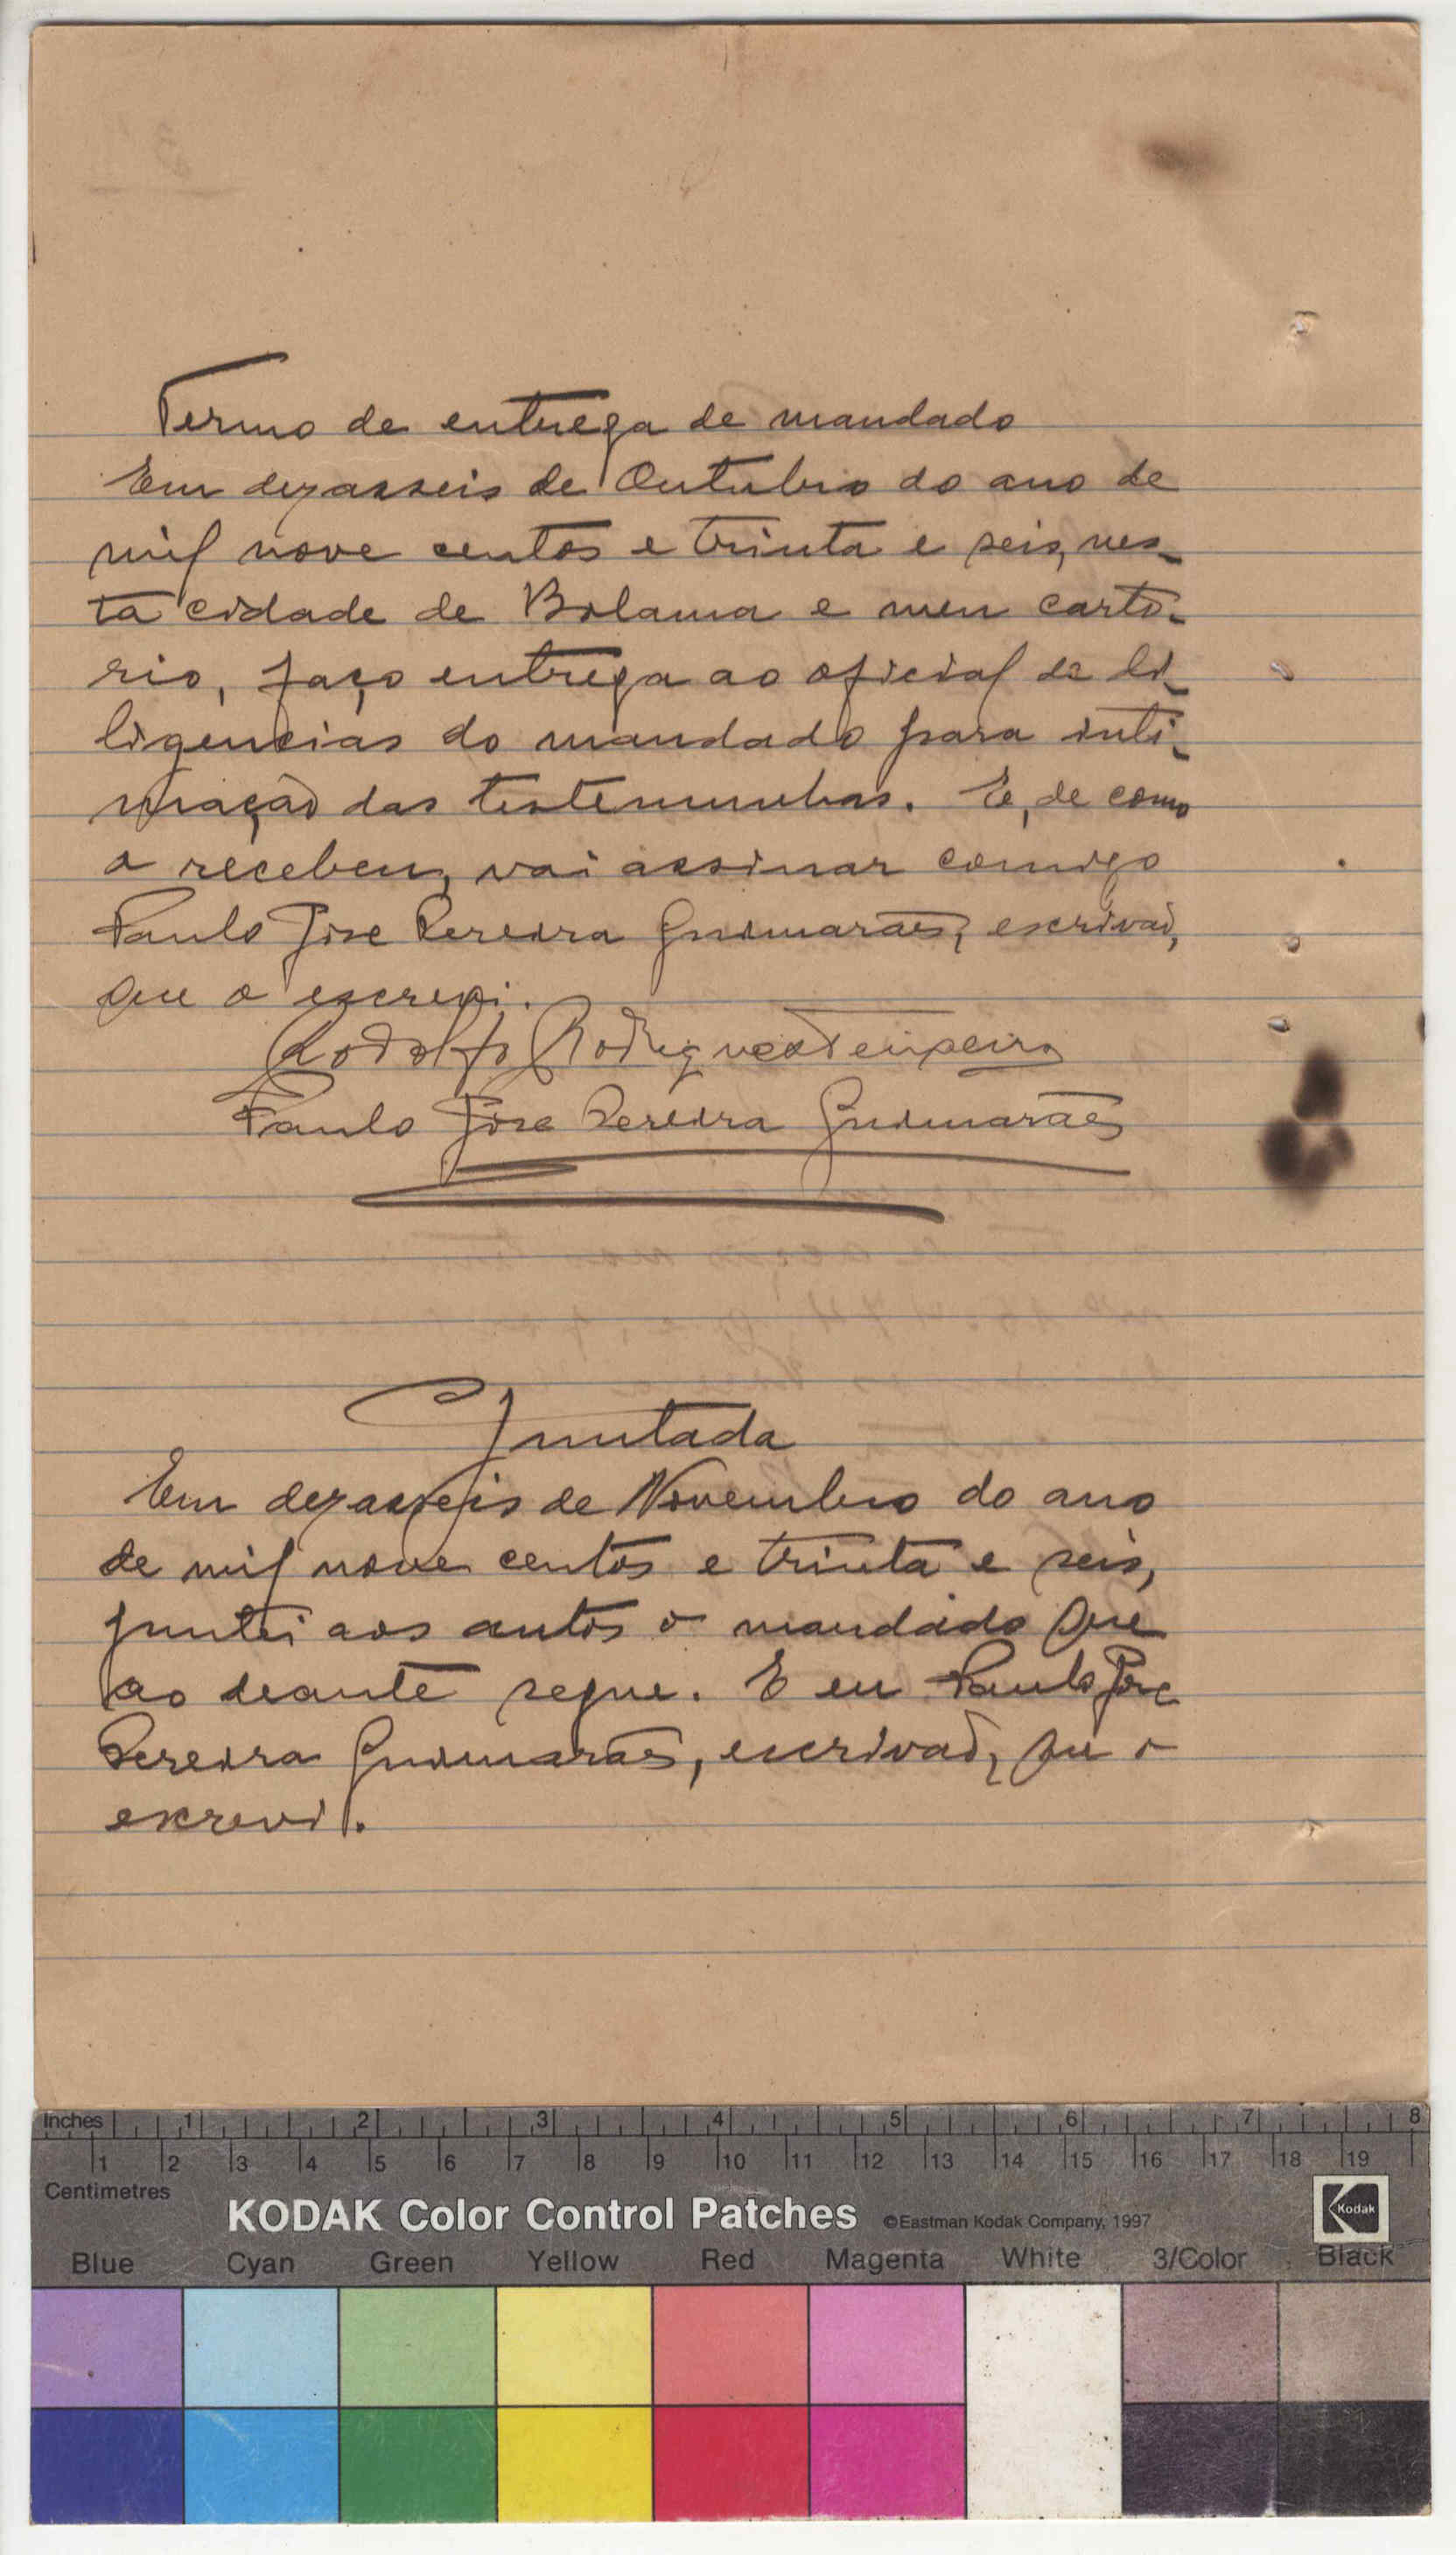 Termo de entrega de mandado
Em dezasseis de Outubro do ano de
mil nove centos e trinta e seis, nes-
ta cidade de Bolama e meu carto-
rio, faço entrega ao oficial de di-
ligencias do mandado para inti-
mação das testemunhas. E, de como
o recebeu, vai assinar comigo
Paulo José Pereira Guimarães, escrivão,
que o escrevi.
Rodolfo Rodrigues
Paulo José Pereira Guimarães
Juntada
Em dezasseis de Novembro do ano
de mil nove centos e trinta e seis,
juntei aos autos o mandado que
ao deante segue. E eu Paulo José
Pereira Guimarães, escrivão, que o
escrevi.
Inches 1 2 3 4 5 6 7 8
1 2 3 4 5 6 7 8 9 10 11 12 13 14 15 16 17 18 19
Centimetres
KODAK Color Control Patches ©Eastman Kodak Company, 1997 Kodak
Blue Cyan Green Yellow Red Magenta White 3/Color Black